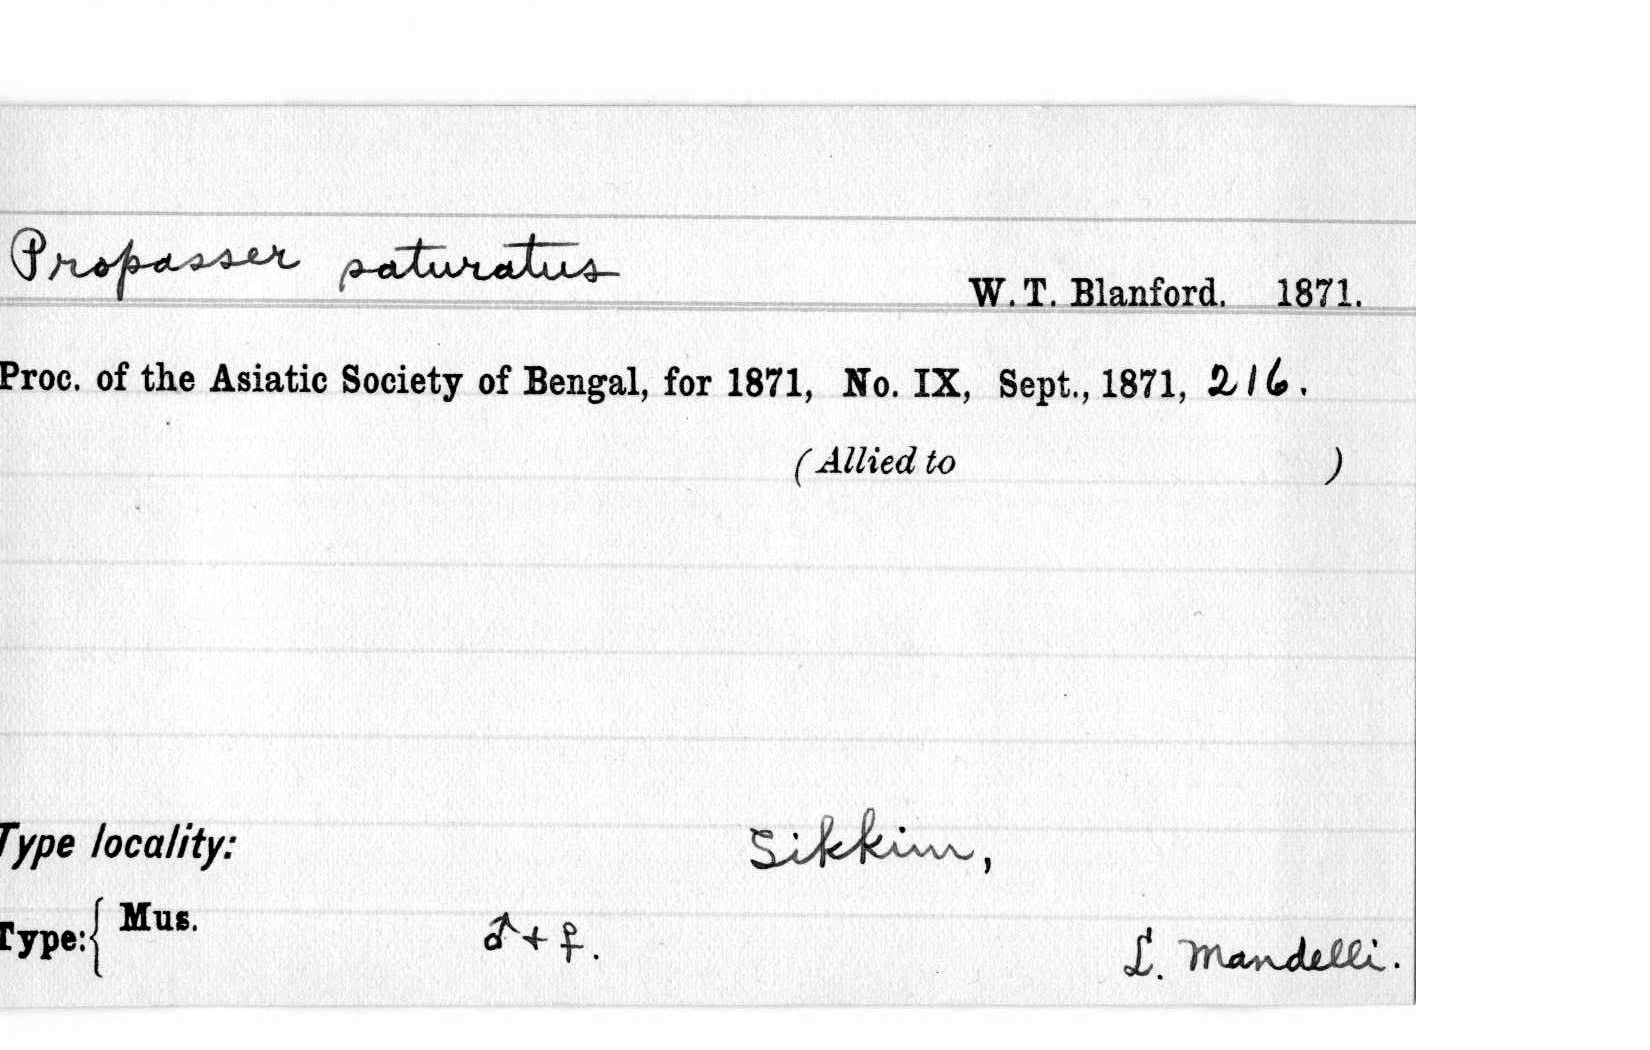 Propasser saturatus
W. T. Blanford. 1871.
Proc. of the Asiatic Society of Bengal, for 1871, No. IX, Sept., 1871, 216.
(Allied to )
Type locality: Sikkim,
Type: { Mus. ♂ + ♀. L. Mandelli.